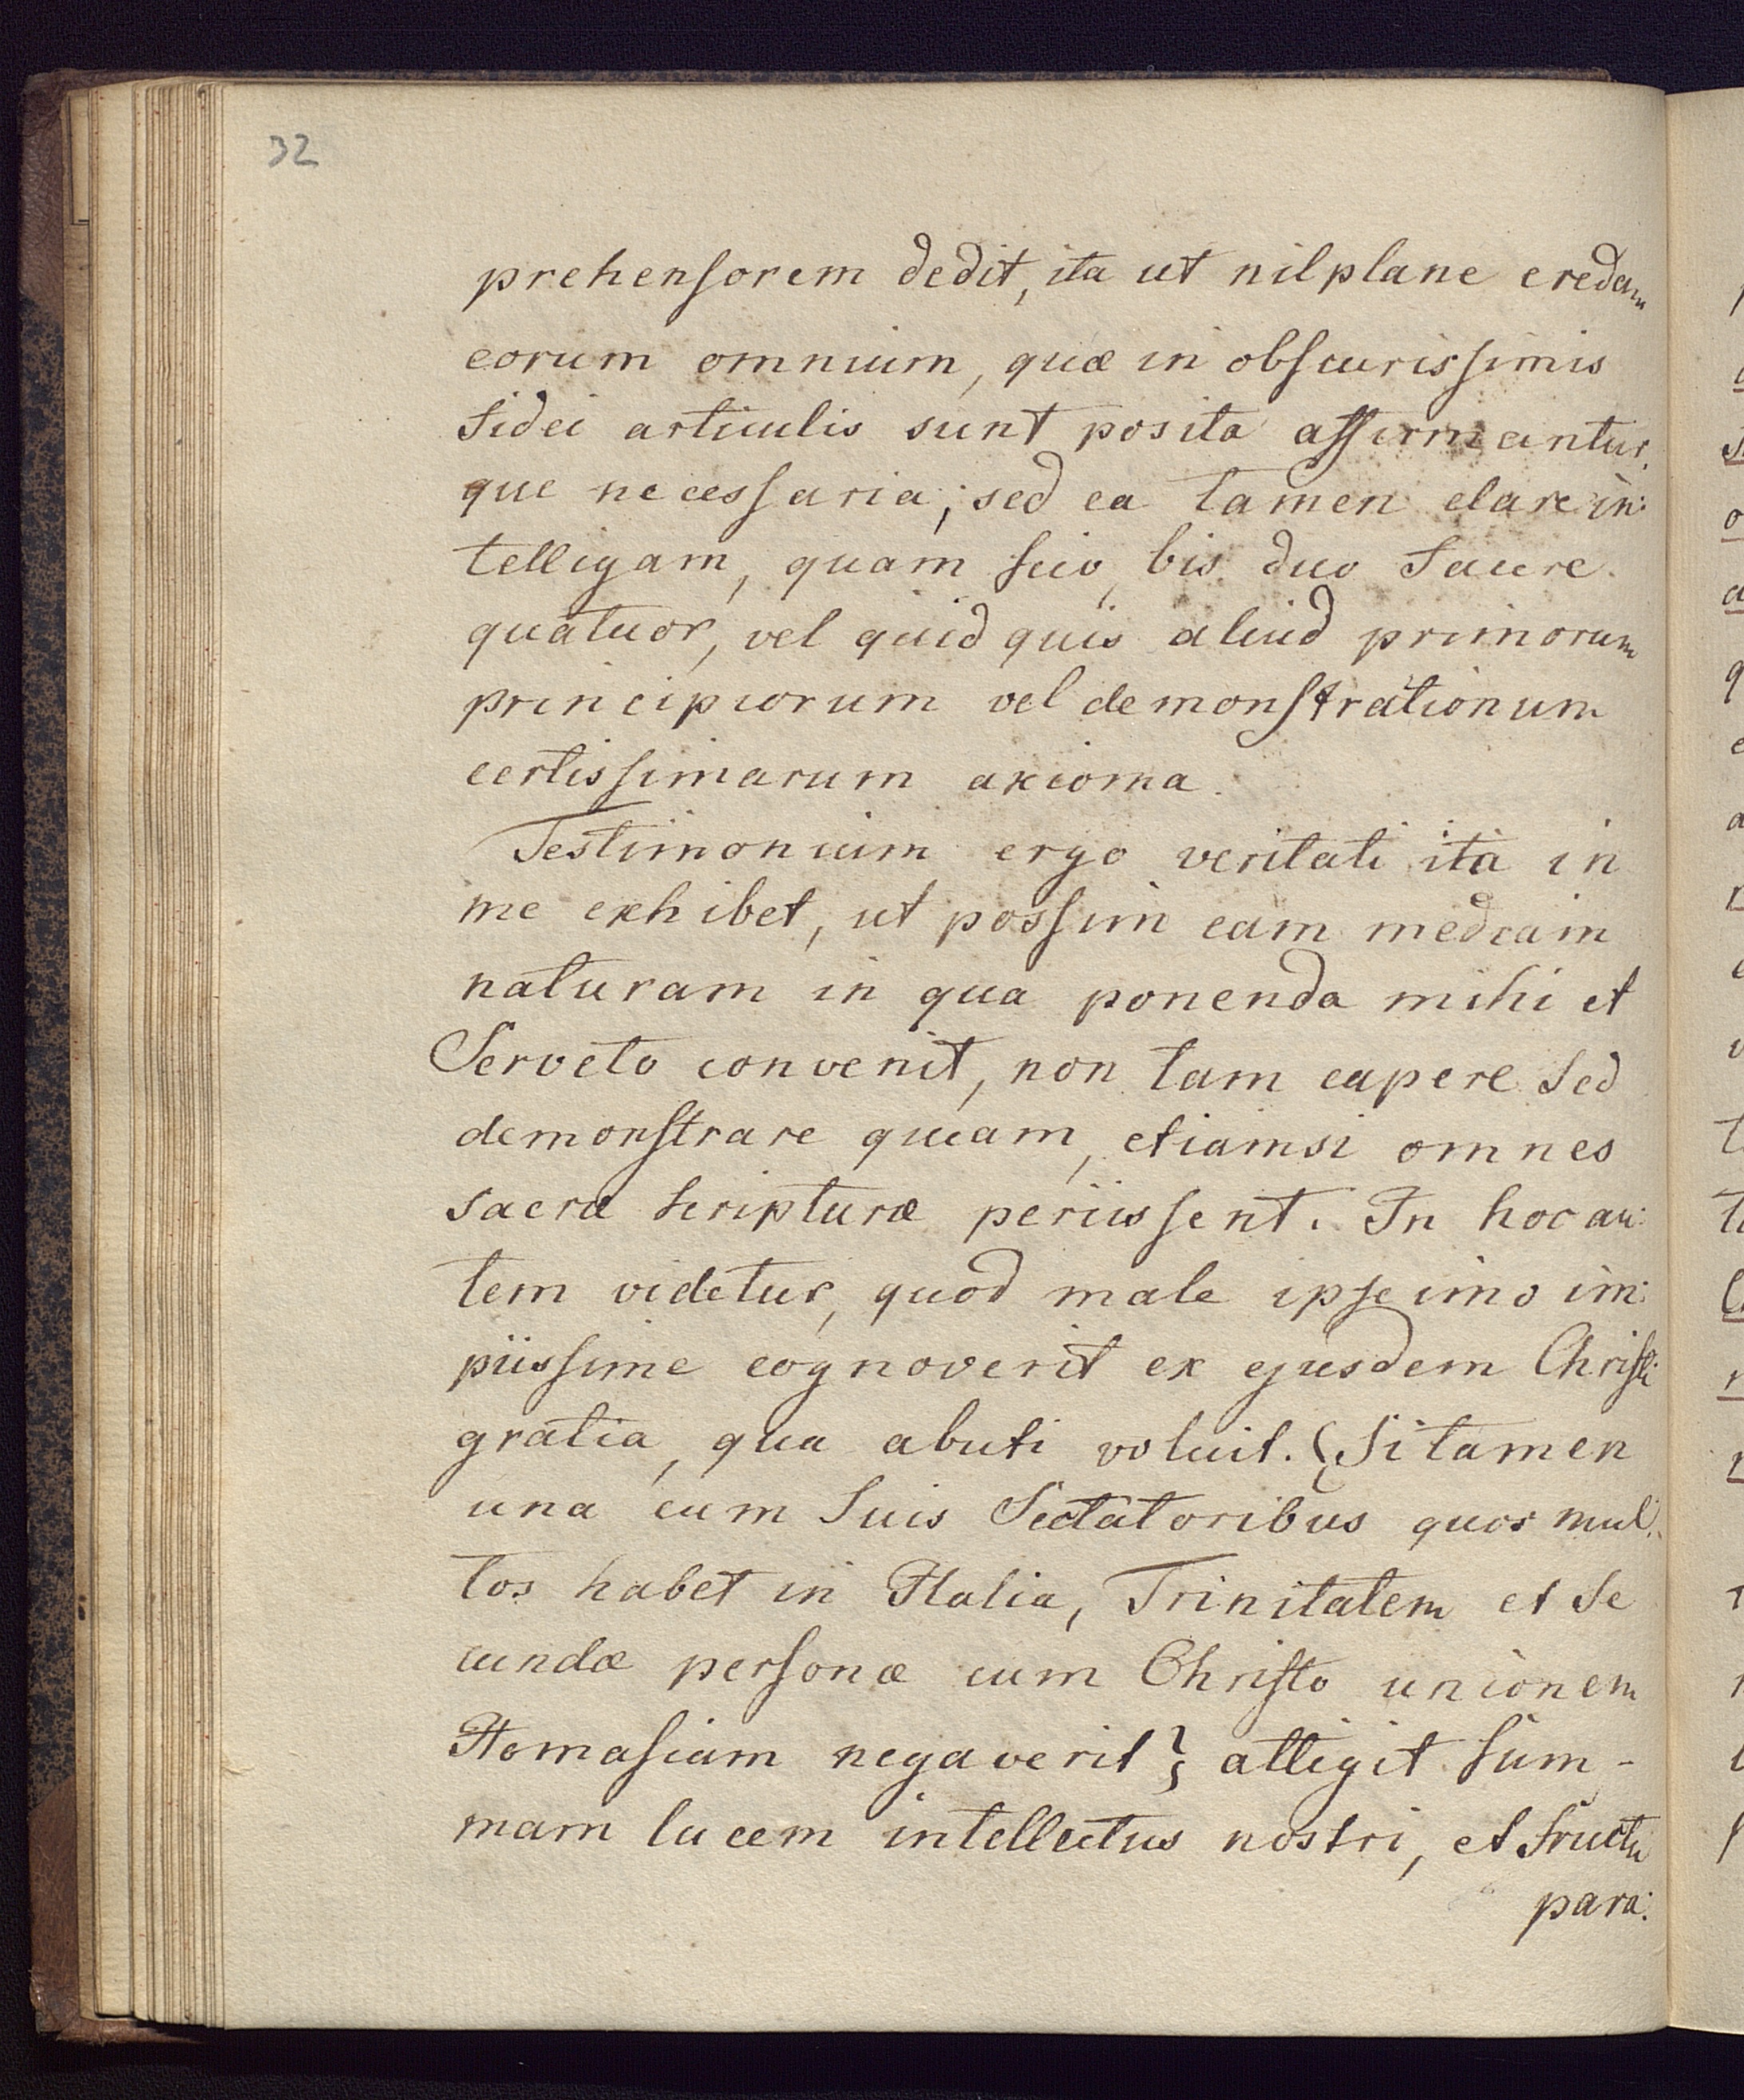 32
prehensorem dedit, ita ut nil plane credam
eorum omnium, quæ in obscurissimis
fidei articulis sunt posita affirmantur,
que necessaria; sed ea tamen clare in:
telligam, quam scio, bis duo facere
quatuor, vel quid quis aliud primorum
principiorum vel demonstrationum
certissimarum axioma.
Testimonium ergo veritati ita in
me exhibet, ut possim eam mediam
naturam in qua ponenda mihi et
Serveto convenit, non tam capere sed
demonstrare queam, etiamsi omnes
sacræ scripturæ periissent. In hoc au:
tem videtur, quod male ipse imo im:
piissime cognoverit ex ejusdem Christi
gratia, qua abuti voluit. (Si tamen
una cum suis Sectatoribus quos mul:
tos habet in Italia, Trinitatem et se
cundæ personæ cum Christo unionem
Homasiam negaverit) attigit sum-
mam lucem intellectus nostri, et fructu
para: